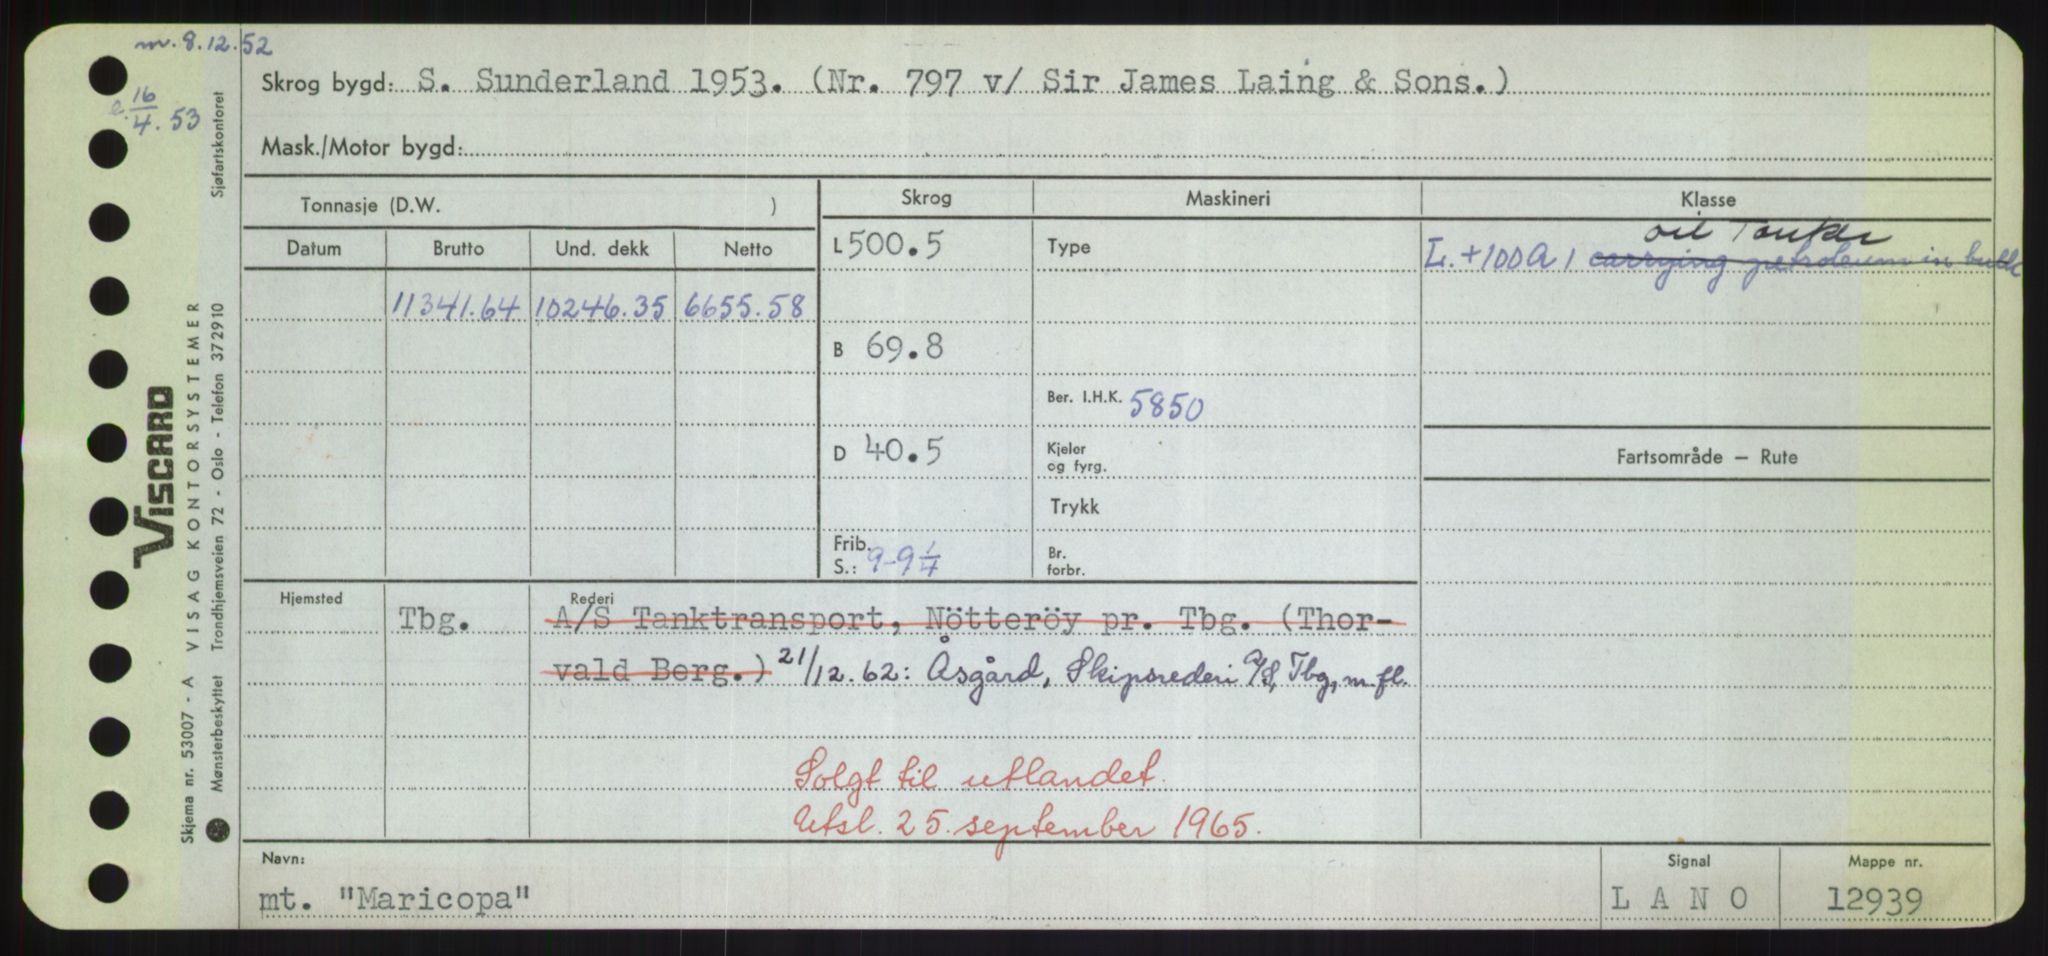 m. 8.12.52
16/4.53
Skrog bygd: S. Sunderland 1953. (Nr. 797 v/ Sir James Laing & Sons.)
Mask./Motor bygd:
Tonnasje (D.W. )
Skrog
Maskineri
Klasse
Datum
Brutto
Und. dekk
Netto
L 500.5
Type
oil Tanker
L. +100A1 carrying petroleum in bulk
11341.64
10246.35
6655.58
B 69.8
Ber. I.H.K. 5850
D 40.5
Kjeler
og fyrg.
Fartsområde – Rute
Trykk
Frib.
S.: 9-9 1/4
Br.
forbr.
Hjemsted
Rederi
Tbg.
A/S Tanktransport, Nötteröy pr. Tbg. (Thor-
vald Berg.) 21/12.62: Åsgård, Skipsrederi A/S, Tbg, m.fl.
Solgt til utlandet.
Utsl. 25. september 1965.
Navn:
mt. "Maricopa"
Signal
LANO
Mappe nr.
12939
VISCARD
Skjema nr. 53007 - A - VISAG KONTORSYSTEMER
Mønsterbeskyttet Trondhjemsveien 72 - Oslo - Telefon 372910
Sjøfartskontoret